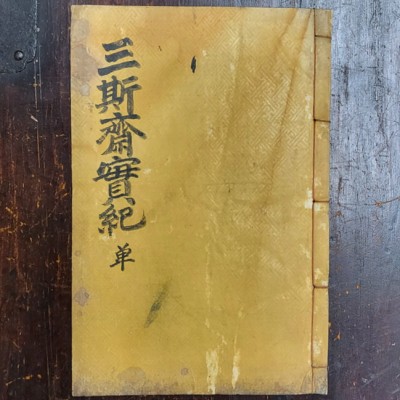 三斯齋實紀
单